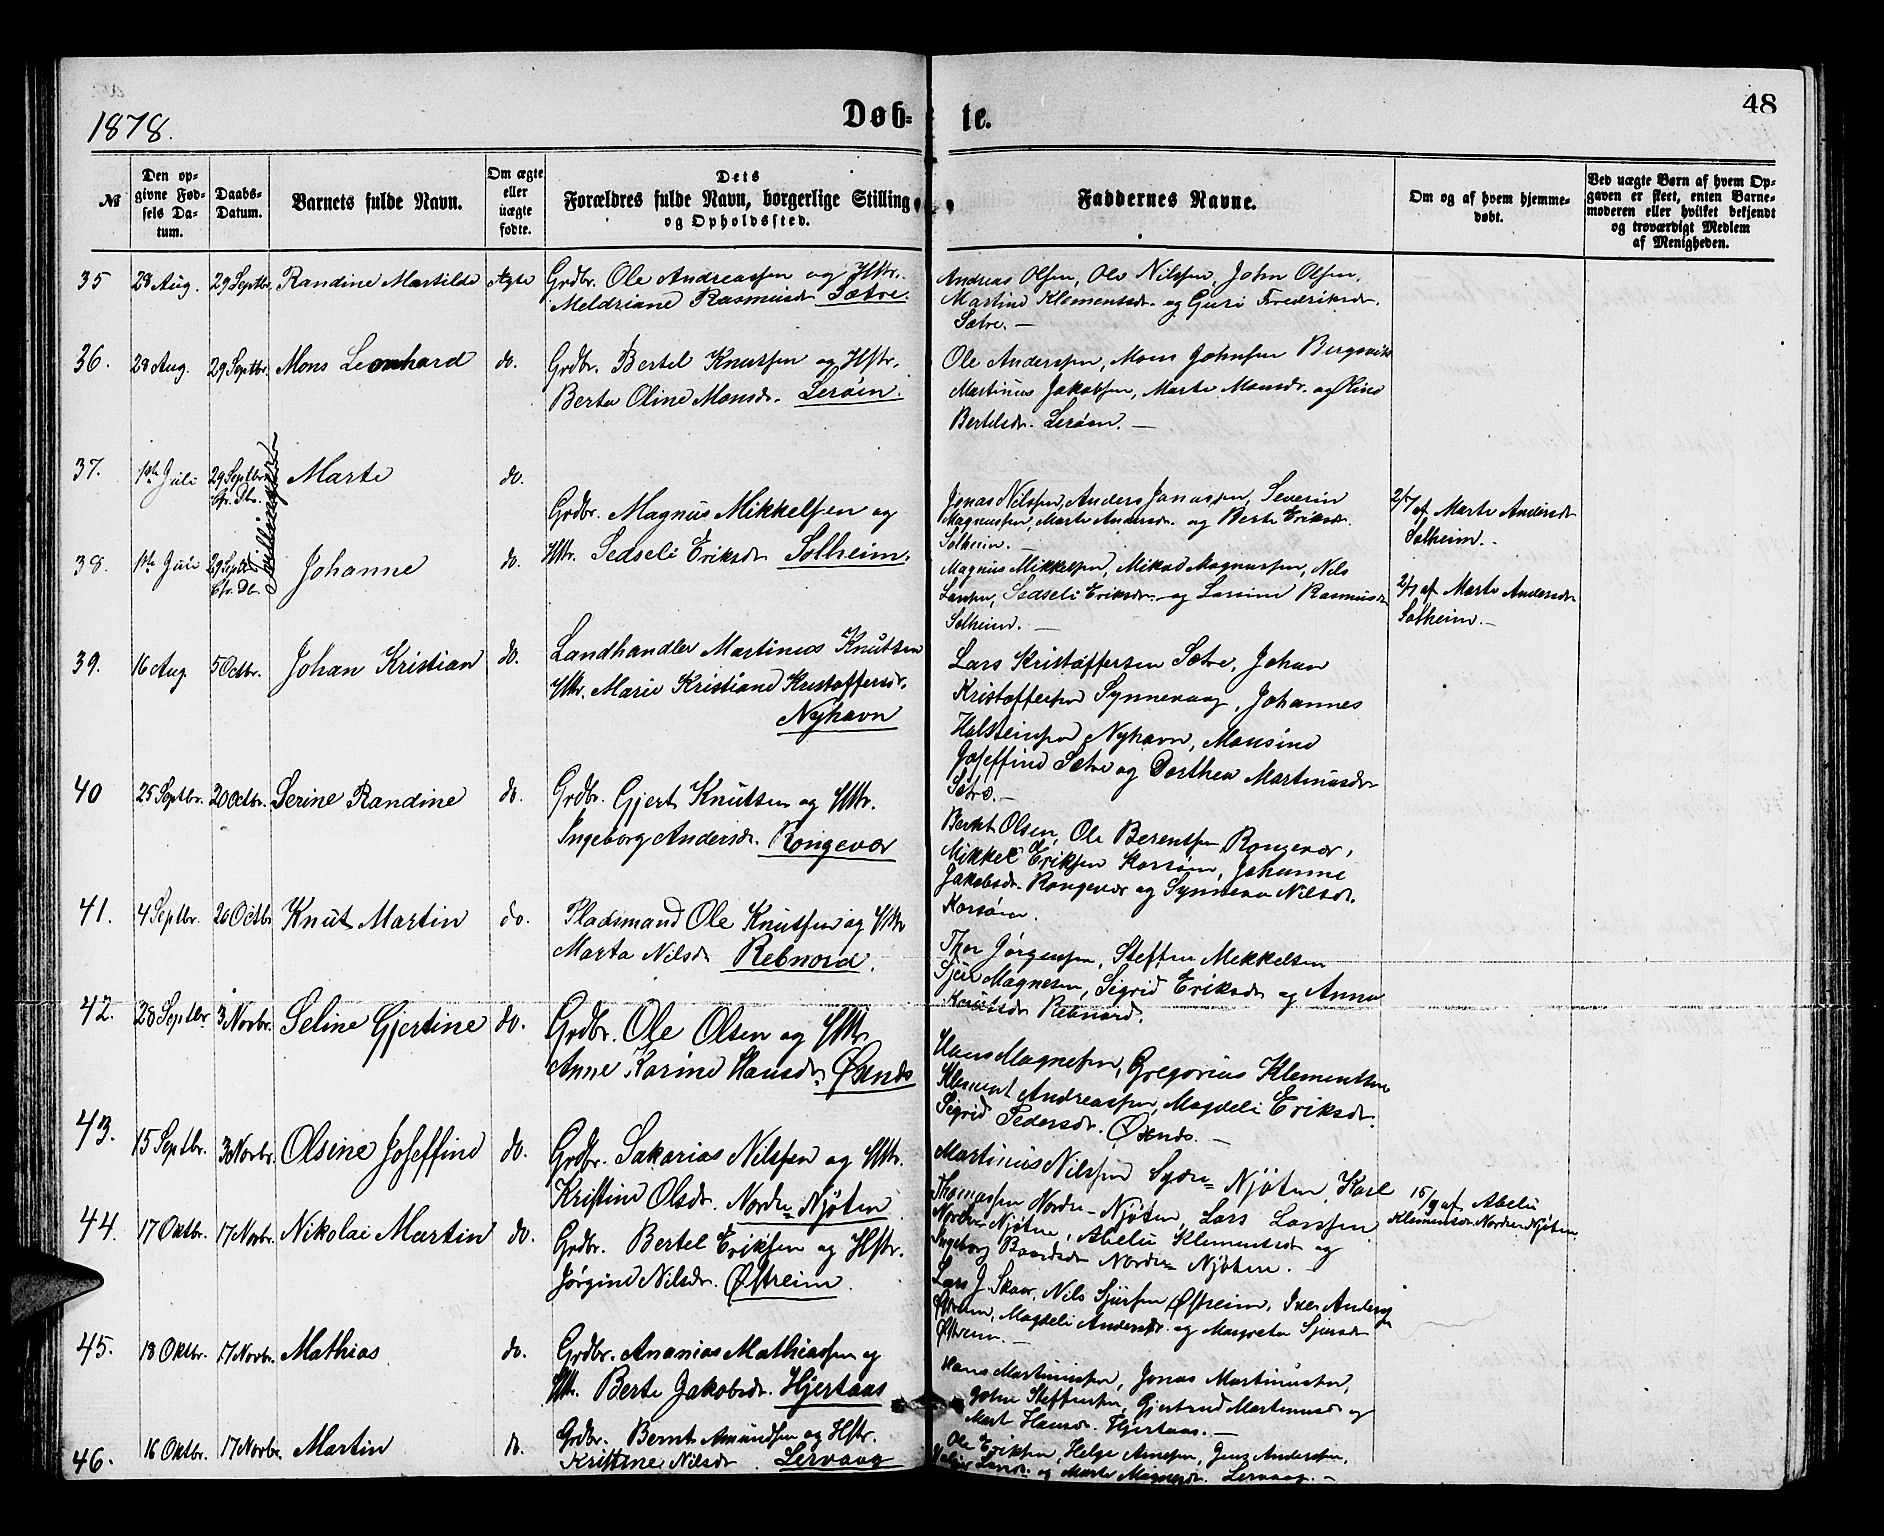 1878.
Døb-te.
48
№
Den opgivne Fødsels Datum.
Daabs-Datum.
Barnets fulde Navn.
Om ægte eller uægte fødte.
Dets Forældres fulde Navn, borgerlige Stilling og Opholdssted.
Faddernes Navne.
Om og af hvem hjemmedøbt.
Ved uægte Børn af hvem Opgaven er skeet, enten Barnemoderen eller hvilket bekjendt og troværdigt Medlem af Menigheden.
35 28 Aug. 29 Septbr. Randine Martilde Ægte Grdbr. Ole Andreassen og Hstr.
Meldriane Rasmusdr Sætre.
Andreas Olsen, Ole Nilssen, John Olsen,
Martine Klementsdr. og Guri Fredriksdr.
Sætre. —
36. 28 Aug. 29 Septbr. Mons Leonhard do. Grdbr. Bertel Knutsen og Hstr.
Berta Oline Monsdr. Lerøin.
Ole Anderssen, Mons Johnsen Bergsvik
Martinus Jakobsen, Marte Monsdr. og Oline
Bertelsdr. Lerøen. —
37. 1ste Juli 29 Septbr. Cfr. Db. Marte do.
Tvillinger
Grdbr. Magnus Mikkelsen og
Hstr. Sedseli Eriksdr Solheim.
Jonas Nilssen, Anders Jonassen, Severin
Magnussen, Marte Andersdr. og Berte Eriksdr.
Solheim. —
2/7 af Marte Andersdr
Solheim. -
38. 1ste Juli 29 Septbr Cfr. Db. Johanne do.
Magnus Mikkelsen, Mikal Magnussen, Nils
Larssen, Sedseli Eriksdr. og Larsine Rasmusdr
Solheim. —
2/7 af Marte Andersdr
Solheim. -
39. 16 Aug 5 Octbr. Johan Kristian do. Landhandler Martinus Knutsen
Hstr. Marie Kristiane Kristoffersdr.
Nyhavn
Lars Kristoffersen Sætre, Johan
Kristoffersen Synnevaag, Johannes
Halsteinsen Nyhavn, Monsine
Joseffine Sætre og Dorthea Martinusdr
Sætre. -
40 25 Septbr. 20 Octbr. Serine Randine do. Grdbr. Gjert Knutsen og Hstr.
Ingeborg Andersdr. Rongevær
Olsen, Ole Berentsen Rongevær,
Mikkel Eriksen Korsøen, Johanne
Jakobsdr. Rongevær og Synneva Nilsdr.
Korsøen.
41. 4 Septbr. 20 Octbr Knut Martin do. Pladsmand Ole Knutsen og Hstr
Marta Nilsdr Rebnord.
Thor Jørgensen, Steffen Mekkelsen
Sjur Magnesen, Sigrid Eriksdr og Anna
Knutsdr Rebnord.
42. 28 Septbr 3 Novbr. Seline Gjertine do. Grdbr. Ole Olsen og Hstr.
Anne Karine Hansdr. Øxnds
Hans Magnesen, Gregorius Klementsen
Klement Andreassen, Magdeli Eriksdr.
Sigrid Pedersdr. Øxnds. —
43. 15 Septbr. 3 Novbr. Olsine Joseffine do. Grdbr. Sakarias Nilssen og Hstr.
Kristine Olsdr. Nordre Njøten
Martinus Nilssen Sydre Njøten, Karl
Thomassen Nordre-Njøten, Lars Larssen
Nordre Njøten, Abelu Klementsdr og
Ingeborg Baardsdr Nordre Njøten. —
15/9 af Abelu
Klementsdr Nordre Njøten.
44. 17 Oktbr. 17 Novbr. Nikolai Martin do. Grdbr. Bertel Eriksen og Hstr.
Jørgine Nilsdr. Østreim.
Lars J. Skaar, Nils Sjursen Østreim, Iver Anderssen
Østreim, Magdeli Andersdr. og Margreta Sjursdr
Østreim. —
45. 13 Oktbr. 17 Novbr. Mathias do. Grdbr. Ananias Mathiassen og
Hstr. Berte Jakobsdr. Hjertaas
Hans Martinussen, Jonas Martinussen,
Steffensen, Gjertrud Martinusdr og
Mart Hansdr. Hjertaas. —
46. 16 Oktbr. 17 Novbr. Martin do. Grdbr. Bernt Amundsen og Hstr.
Kristine Nilsdr. Lervaag
Ole Eriksen, Helge Arnesen, Jens Anderssen,
Larsdr. og Marte Magnesdr. Lervaag. —